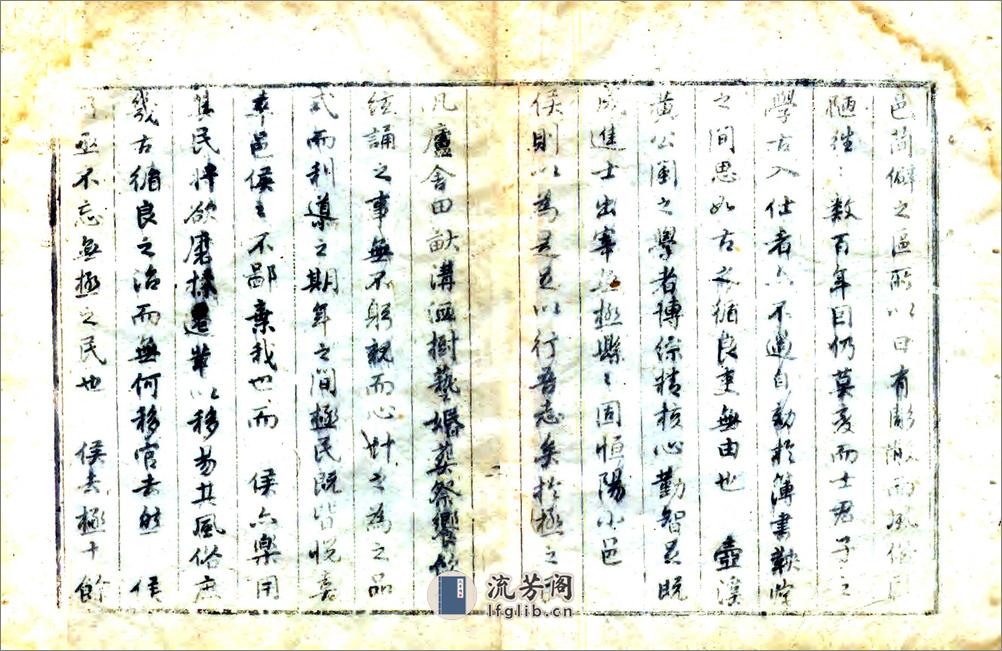 邑簡僻之區所以日有彫敝而風俗
陋往〻数百年因仍莫変而士君子之
學古入仕者亦不過自効扵簿書鞅掌
之間思如古之循良吏無由也　壺溪
黄公閩之學者博綜精核心勤智足既
成進士出宰無極縣〻固恒陽小邑
侯則以為是足以行吾志矣扵極之
凡廬舍田畝溝洫樹藝婚葬祭饗
絃誦之事無不躬親而心計之為之品
式而利導之期年之間極民既皆悦
率邑侯之不鄙棄我也而　侯亦樂用
其民將欲磨揉遷革以移易其風俗庶
幾古循良之治而無何移官去然　侯
亟不忘無極之民也　侯去極十餘
流芳阁
lfglib.cn